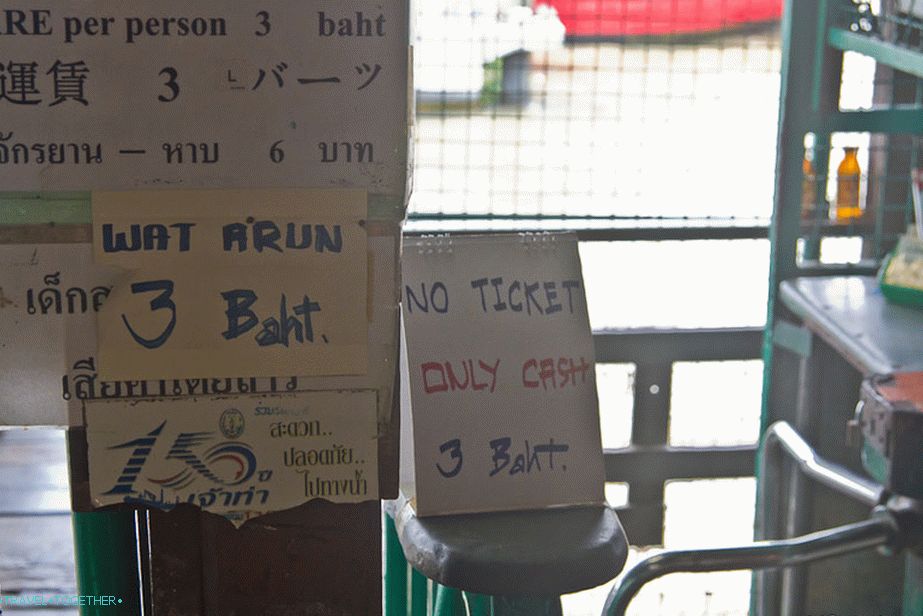 ARE per person 3 baht
運賃 3 バーツ
จักรยาน — หาบ 6 บาท
WAT ARUN
3 Baht.
เด็ก
NO TICKET
ONLY CASH
3 Baht.
150 ปี
สะดวก..
ปลอดภัย..
ไปทางน้ำ
กรมเจ้าท่า
TRAVEL-TOGETHER